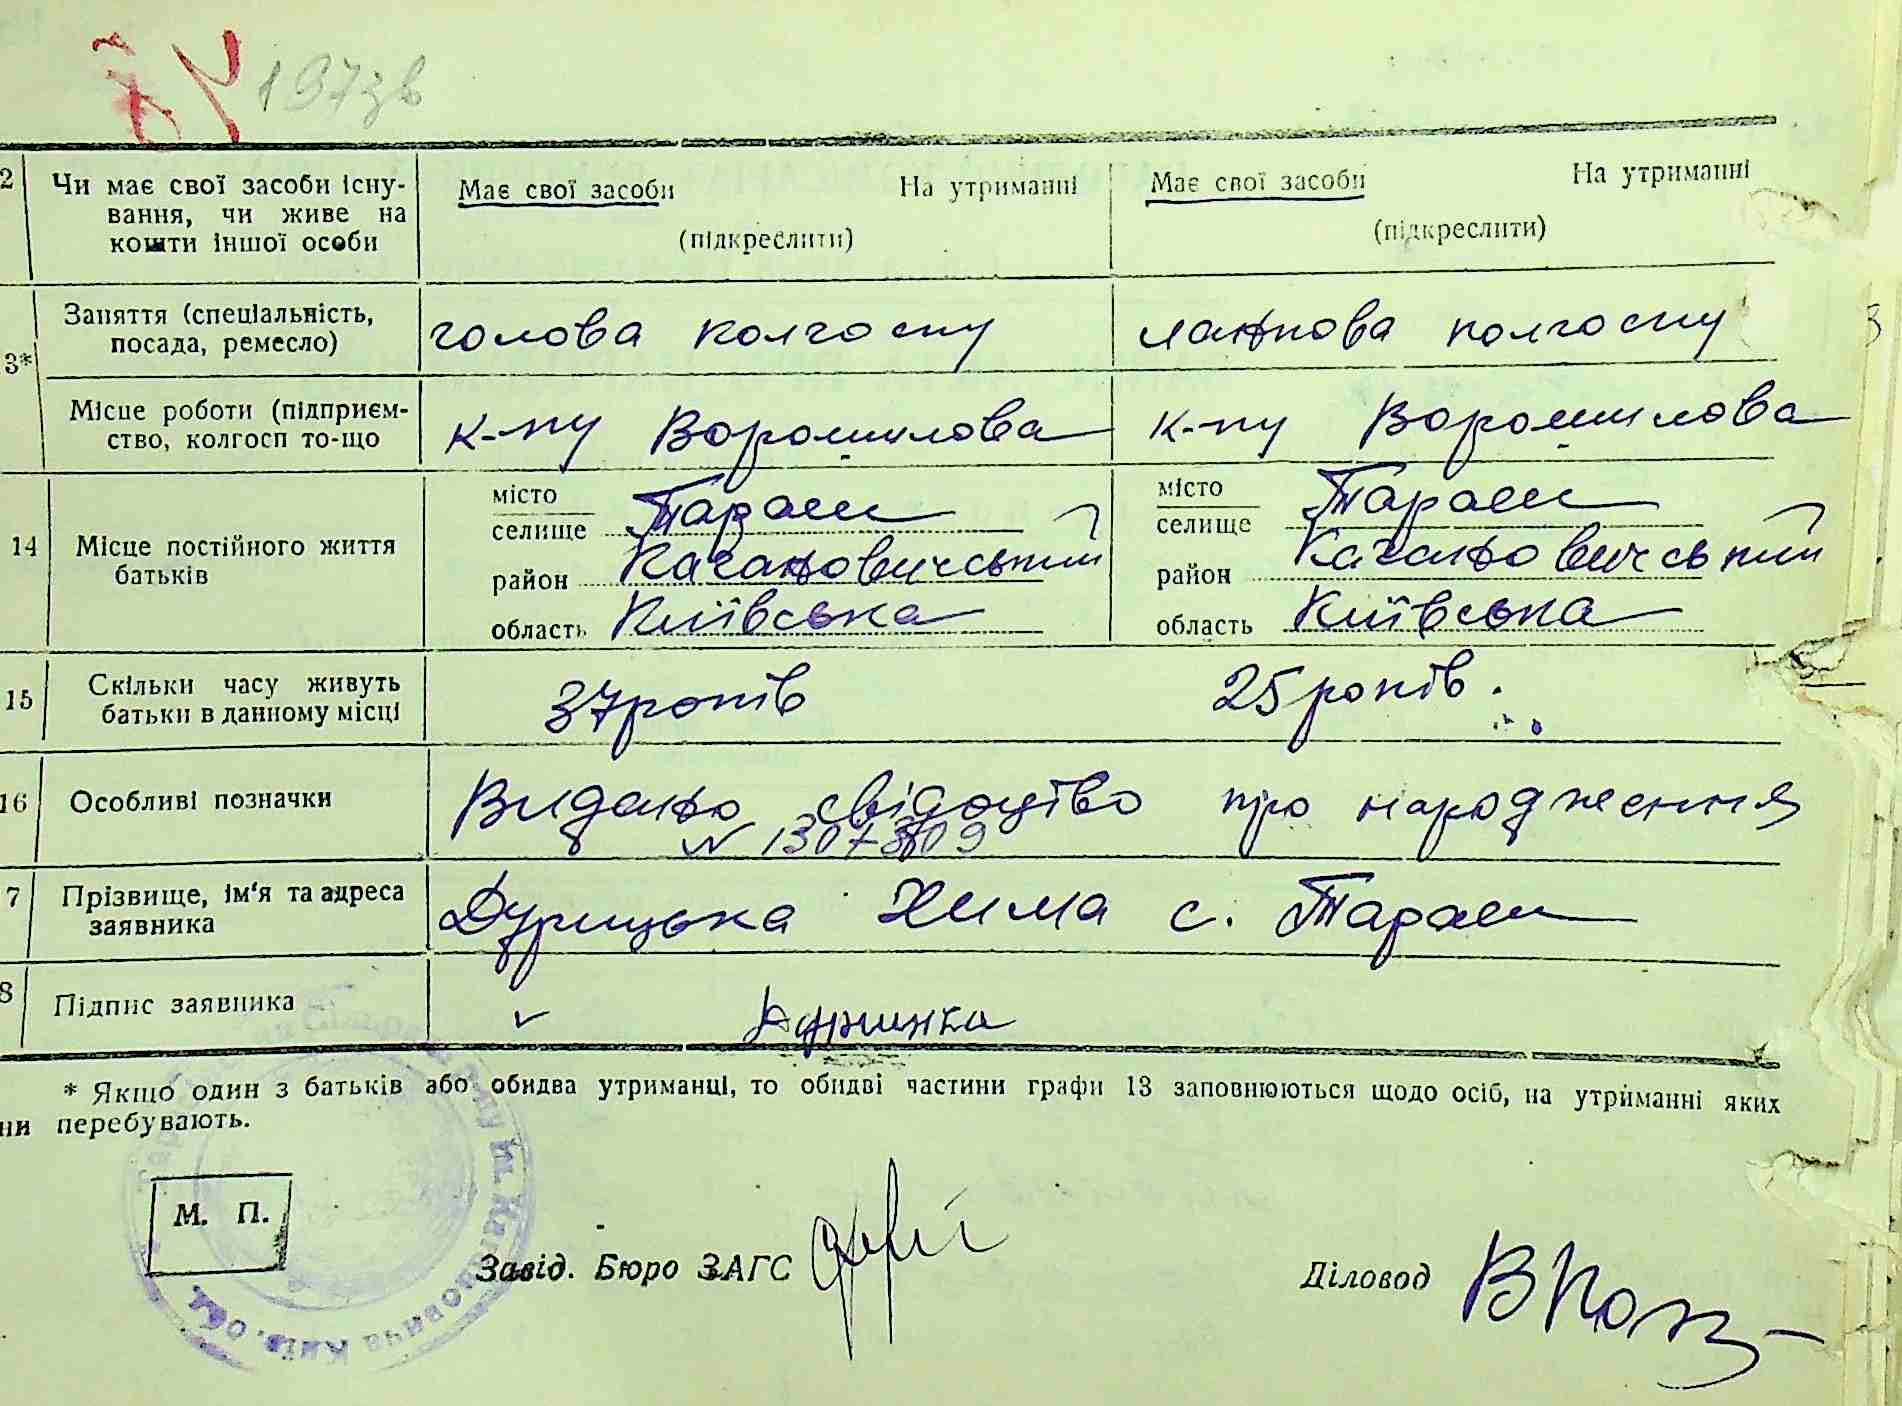 197зв
2 Чи має свої засоби існу- Має свої засоби На утриманні Має свої засоби На утриманні
вання, чи живе на
кошти іншої особи (підкреслити) (підкреслити)
3* Заняття (спеціальність,
посада, ремесло) голова колгоспу ланкова колгоспу
Місце роботи (підприєм-
ство, колгосп то-що к-пу Ворошилова к-пу Ворошилова
14 Місце постійного життя
батьків
місто
селище Тараси місто
селище Тараси
район Кагановичський район Кагановичський
область Київська область Київська
15 Скільки часу живуть
батьки в данному місці 37 років 25 років.
16 Особливі позначки Видано свідоцтво про народження
N 1307309
7 Прізвище, ім'я та адреса
заявника Дурицька Хима с. Тараси
8 Підпис заявника
* Якщо один з батьків або обидва утриманці, то обидві частини графи 13 заповнюються щодо осіб, на утриманні яких
ни перебувають.
М. П.
Завід. Бюро ЗАГС
Діловод
Кагановича Київ. обл.